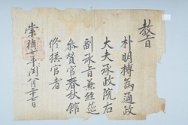 教旨
朴明榑爲通政
大夫承政院右
副承旨兼經筵
參贊官春秋館
修撰官者
崇禎七年閏八月日